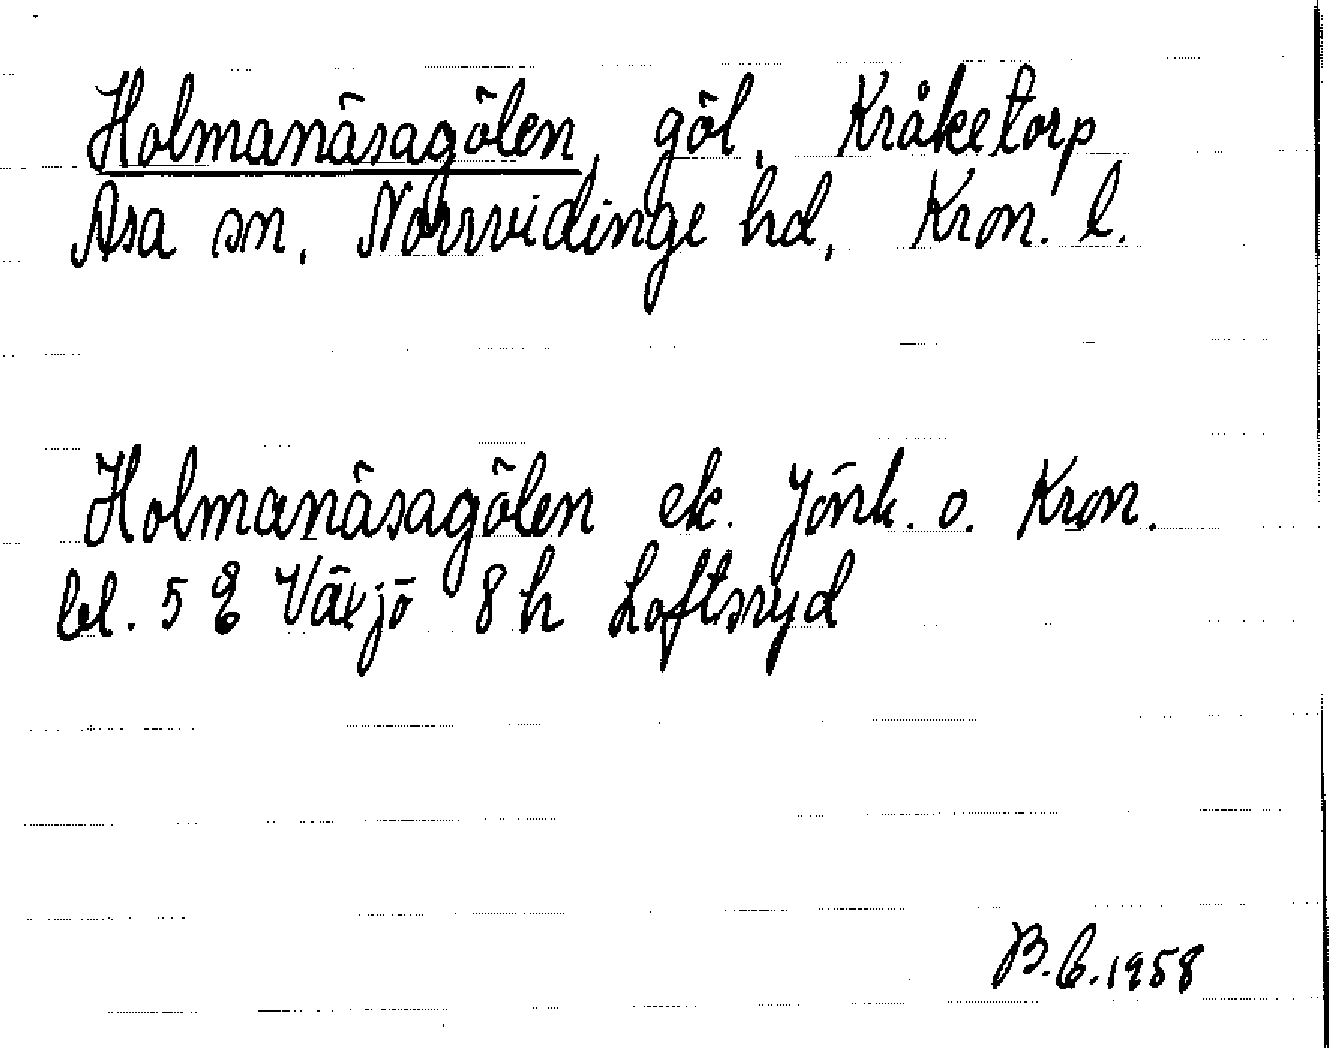 Holmanäsagölen, göl, Kråketorp
Asa sn, Norrvidinge hd, Kron. l.
Holmanäsagölen ek. Jönk. o. Kron.
bl. 5 E Växjö 8 h Loftsryd
B.C. 1958